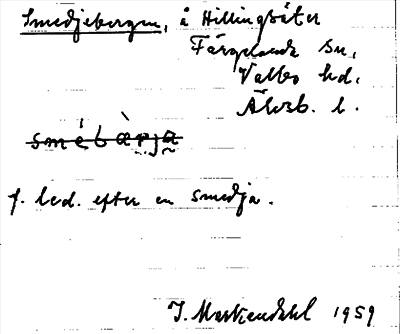 Smedjebergen, å Hillingsäter
Färgelanda sn,
Valbo hd.
Älvsb. l.
smèbàrja
f. led. efter en smedja.
J. Markendahl 1959